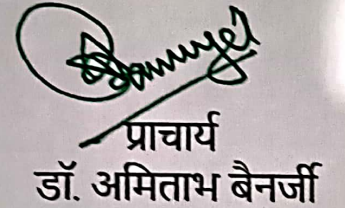 प्राचार्य
डॉ. अमिताभ बैनर्जी